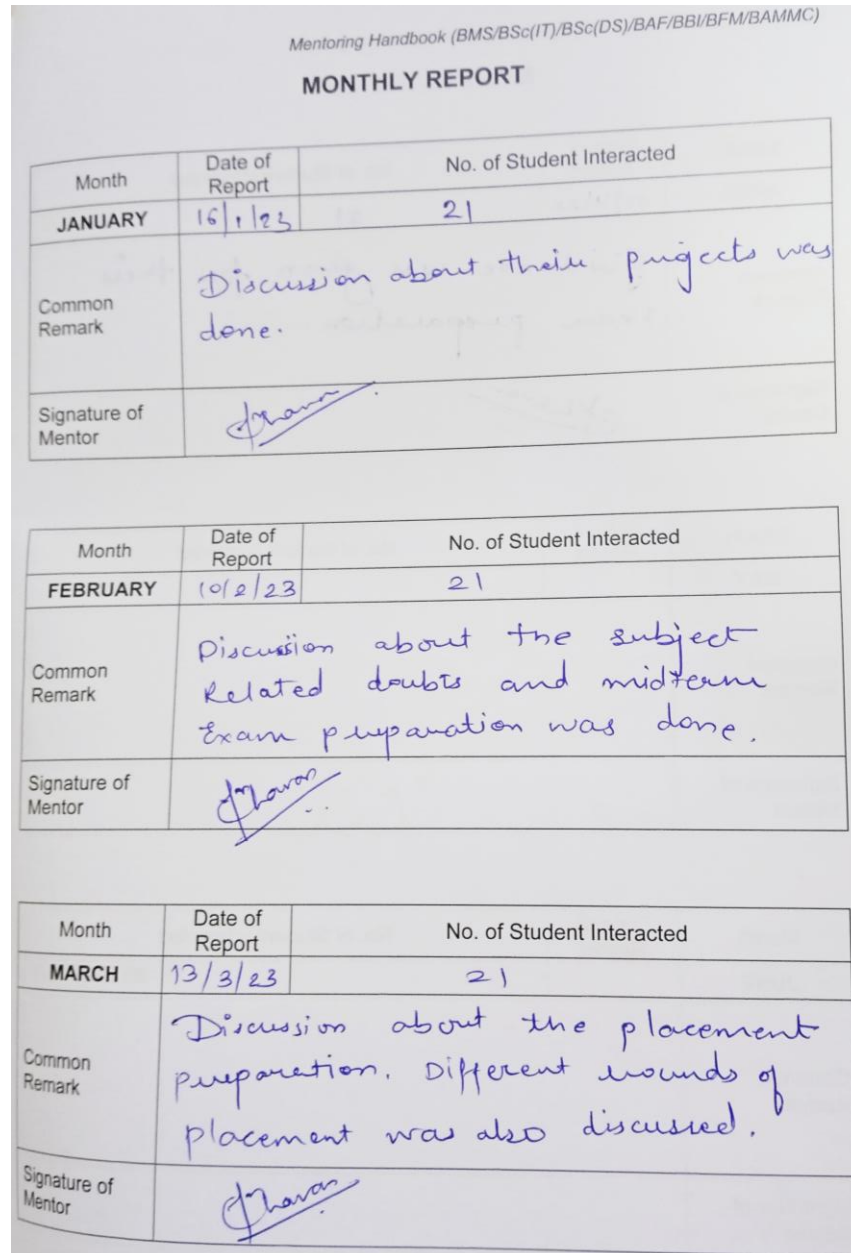 Mentoring Handbook (BMS/BSc(IT)/BSc(DS)/BAF/BBI/BFM/BAMMC)
MONTHLY REPORT
Month Date of Report No. of Student Interacted
JANUARY 16/1/23 21
Common Remark
Discussion about their projects was
done.
Signature of Mentor
Month Date of Report No. of Student Interacted
FEBRUARY 10/2/23 21
Common Remark
Discussion about the subject
Related doubts and midterm
Exam preparation was done.
Signature of Mentor
Month Date of Report No. of Student Interacted
MARCH 13/3/23 21
Common Remark
Discussion about the placement
preparation. Different rounds of
placement was also discussed.
Signature of Mentor